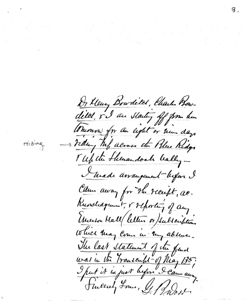 8.
Dr Henry Bowditch, Charles Bow-
ditch, & I are starting off from here
tomorrow for an eight or nine days
riding trip across the Blue Ridge
& up the Shenandoah Valley.—
I made arrangement before I
came away for the receipt, ac-
knowledgment, & reporting of any
Emerson Hall letters or subscriptions
which may come in my absence.
The last statement of the fund
was in the Transcript of May
I put it in just before I came away.
Sincerely Yours,